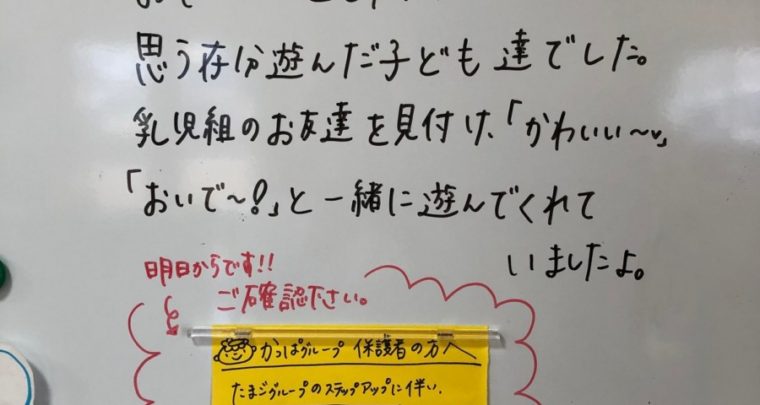 思う存分遊んだ子ども達でした。
乳児組のお友達を見付け、「かわいい〜♡」
「おいで〜!」と一緒に遊んでくれて
いましたよ。
明日からです!!
ご確認下さい。
かっぱグループ 保護者の方へ
たまごグループのステップアップに伴い、